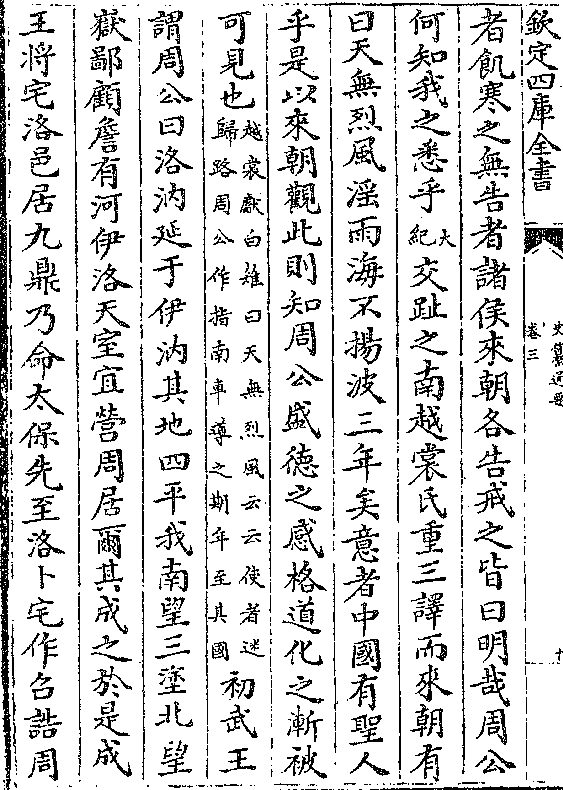 欽定四庫全書
史纂通要
卷三
者飢寒之無告者諸侯來朝各告戒之皆曰明哉周公
何知我之悉乎大紀交趾之南越裳氏重三譯而來朝有
曰天無烈風淫雨海不揚波三年矣意者中國有聖人
乎是以來朝觀此則知周公盛德之感格道化之漸被
可見也越裳獻白雉曰天無烈風云云使者迷歸路周公作指南車導之期年至其國初武王
謂周公曰洛汭延于伊汭其地四平我南望三塗北望
嶽鄙顧詹有河伊洛天室宜營周居爾其成之於是成
王將宅洛邑居九鼎乃命太保先至洛卜宅作召誥周